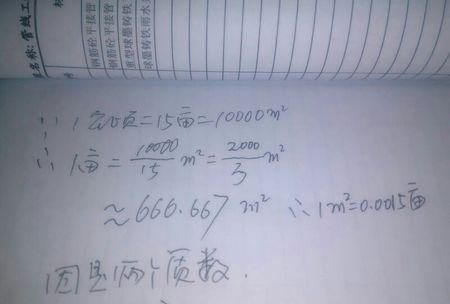 程名称:管线工
钢筋砼平接管
钢筋砼平接管
重型球墨铸铁
球墨铸铁雨水
∵ 1公顷=15亩=10000m²
∴ 1亩=10000/15 m²=2000/3 m²
≈666.667 m² ∴1m²=0.0015亩
因是两个质数.